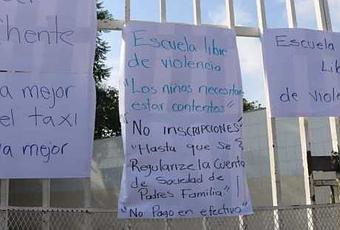 chente
a mejor
el taxi
a mejor
Escuela libre
de violencia
"Los niños necesitan
estar contentos"
"No INSCRIPCIONES"
"Hasta que se
Regularize la Cuenta
de Sociedad de
Padres Familia"
"No Pago en efectivo"
Escuela
Lib
de viole